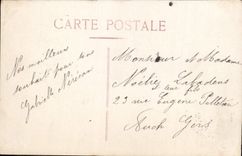 CARTE POSTALE
Nos meilleurs
souhaits pour tous
Gabrielle
Monsieur et Madame
et leur fils
23 rue Eugène Pelletan
Auch Gers